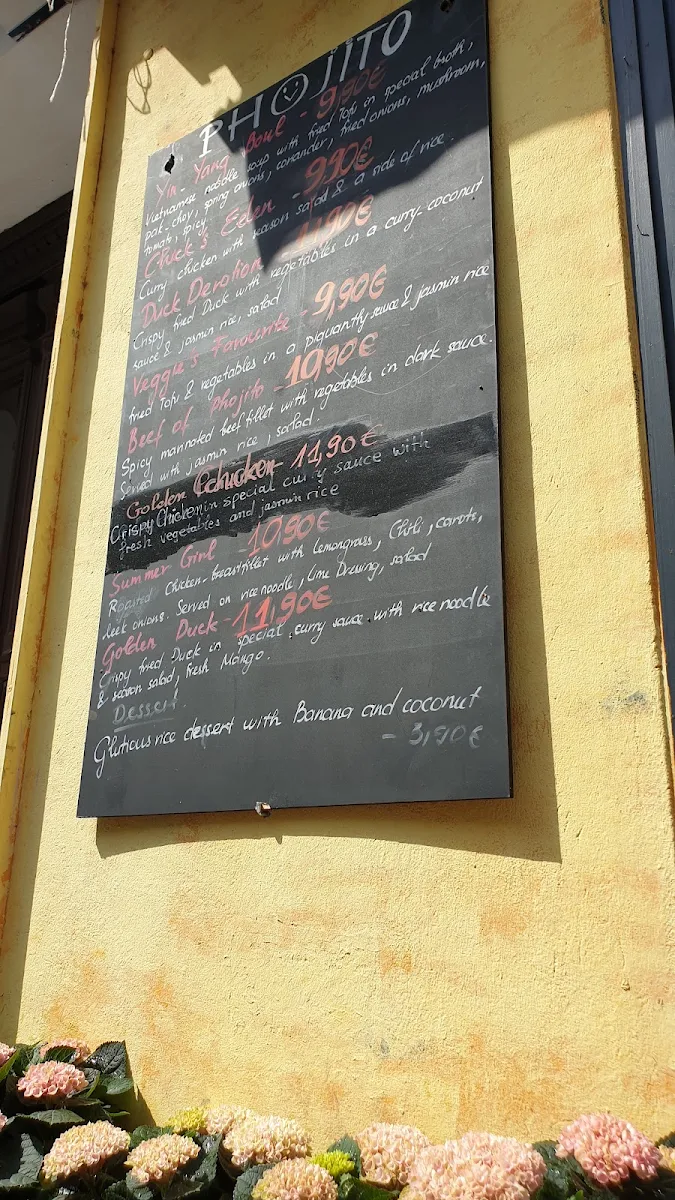 PHOJITO
Yin-Yang Bowl - 9,90€
Vietnamese noodle soup with fried Tofu in special broth,
pak-choy, spring onions, coriander, fried onions, mushroom,
tomato, spicy
Chuck's Eden - 9,90€
Curry chicken with season salad & a side of rice.
Duck Deration - 11,90€
Crispy fried Duck with vegetables in a curry-coconut
sauce & jasmin rice, salad
Veggie's Favourite - 9,90€
fried Tofu & vegetables in a piquantly sauce & jasmin rice
Beef of phojito - 10,90€
Spicy marinated beef fillet with vegetables in dark sauce.
Served with jasmin rice, salad.
Golden Cchicken - 11,90€
Crispy Chicken in special curry sauce with
fresh vegetables and jasmin rice
Summer Girl - 10,90€
Roasted Chicken-breastfillet with lemongrass, Chili, carots,
leek onions. Served on rice noodle, lime Dressing, salad
Golden Duck - 11,90€
Crispy fried Duck in special curry sauce with rice noodle
& season salad, fresh Mango.
Dessert.
Glutious rice dessert with Banana and coconut
- 3,90€